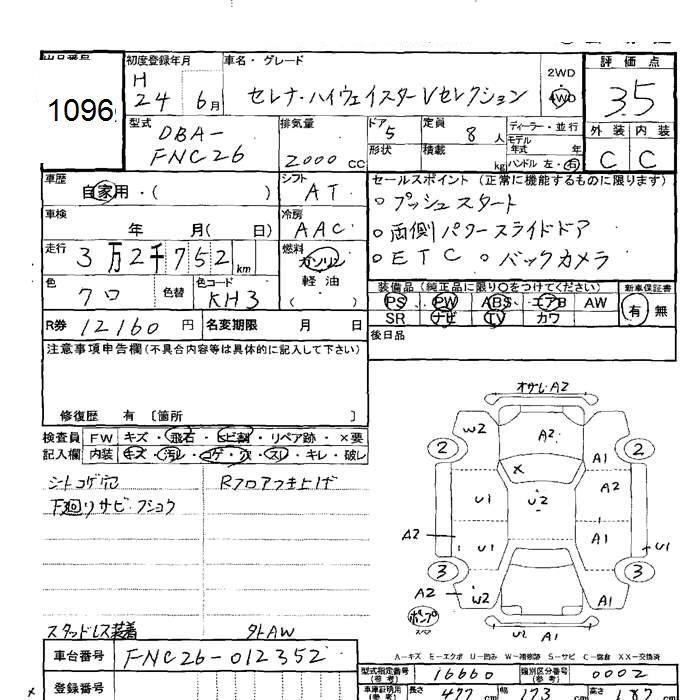 出品番号 初度登録年月 車名・グレード 2WD 4WD 評価点
1096 H 24 6月 セレナ・ハイウェイスターVセレクション 3.5
型式 DBA-FNC26 排気量 2000cc ドア 5 定員 8人 ディーラー・並行
形状 積載 kg モデル年式 年 ハンドル 左・右
外装 内装
C C
車歴 自家用・( ) シフト AT
セールスポイント (正常に機能するものに限ります)
車検 年 月( 日) 冷房 AAC
○プッシュスタート
○両側パワースライドドア
○ETC ○バックカメラ
走行 3万2千752km 燃料 ガソリン 軽油 ( )
色 クロ 色替 色コード KH3
装備品 (純正品に限り○をつけてください) 新車保証書
PS PW ABS エアB AW 有・無
SR ナビ TV カワ
R券 12160円 名変期限 月 日
後日品
注意事項申告欄(不具合内容等は具体的に記入して下さい)
修復歴 有 〔箇所 〕
検査員 FW キズ・飛石・ヒビ割・リペア跡・×要
記入欄 内装 キズ・汚レ・コゲ・穴・スレ・キレ・破レ
シートコゲ穴 Rフロアつき上げ
下廻りサビ・フショウ
スタッドレス装着 外AW
オサレA2
W2 A2 A1
2 2
X A2
U1 U2
A2 U1 A1 U1
3 3
A2 W2 A1
ポンプ
U2 A1
A-キズ E-エクボ U-凹み W-補修跡 S-サビ C-腐食 XX-交換済
車台番号 FNC26-012352
型式指定番号(参考) 16660 類別区分番号(参考) 0002
登録番号
車庫証明用(参考) 長さ 477cm 幅 173cm 高さ 187cm